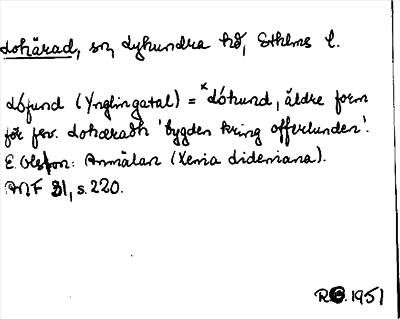 Lohärad, sn, Lyhundra hd, Sthlms l.
Lófund (Ynglingatal) = *Lóhund, äldre form
för fsv. Lohæradh 'bygden kring offerlunden'.
E. Olsson: Anmälan (Xenia Lideniana).
ANF 31, s. 220.
1951